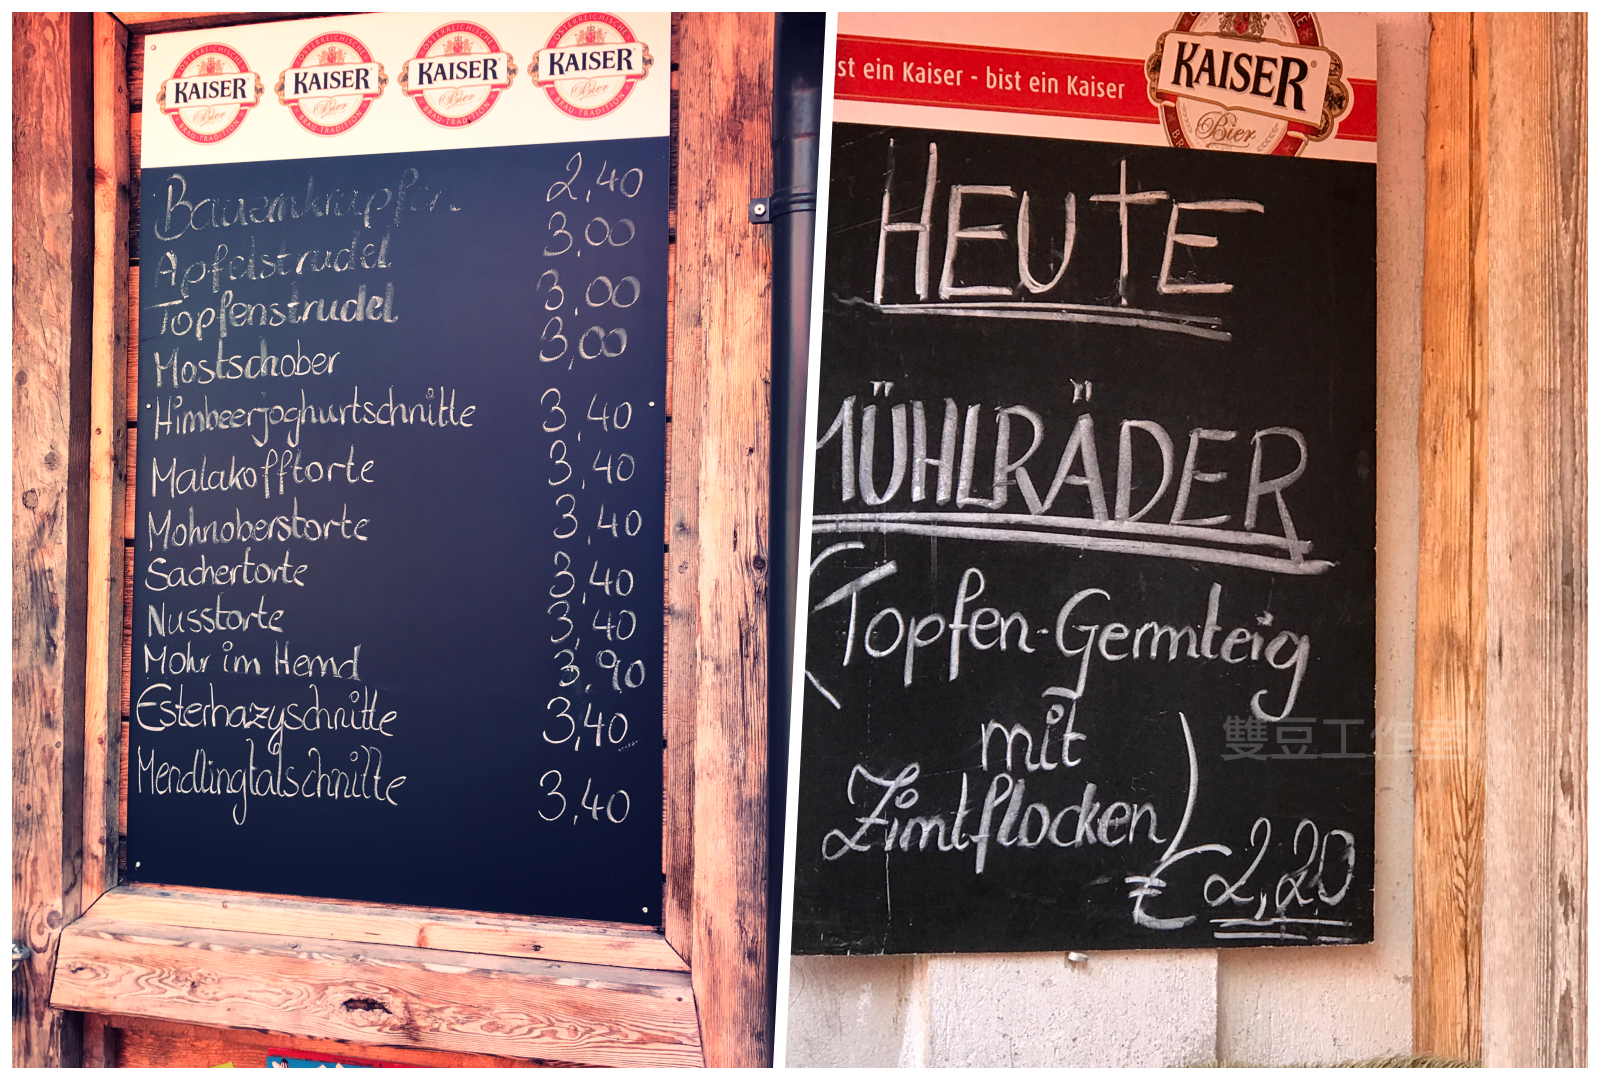 ÖSTERREICHISCHE
KAISER
Bier
BRAU-TRADITION
ÖSTERREICHISCHE
KAISER
Bier
BRAU-TRADITION
ÖSTERREICHISCHE
KAISER
Bier
BRAU-TRADITION
ÖSTERREICHISCHE
KAISER®
Bier
BRAU-TRADITION
Bauernkrapfen 2,40
Apfelstrudel 3,00
Topfenstrudel 3,00
Mostschober 3,00
Himbeerjoghurtschnitte 3,40
Malakofftorte 3,40
Mohnoberstorte 3,40
Sachertorte 3,40
Nusstorte 3,40
Mohr im Hemd 3,90
Esterhazyschnitte 3,40
Mendlingtalschnitte 3,40
st ein Kaiser - bist ein Kaiser
KAISER®
Bier
HEUTE
MÜHLRÄDER
(Topfen-Germteig
mit
Zimtflocken)
€ 2,20
雙豆工作室